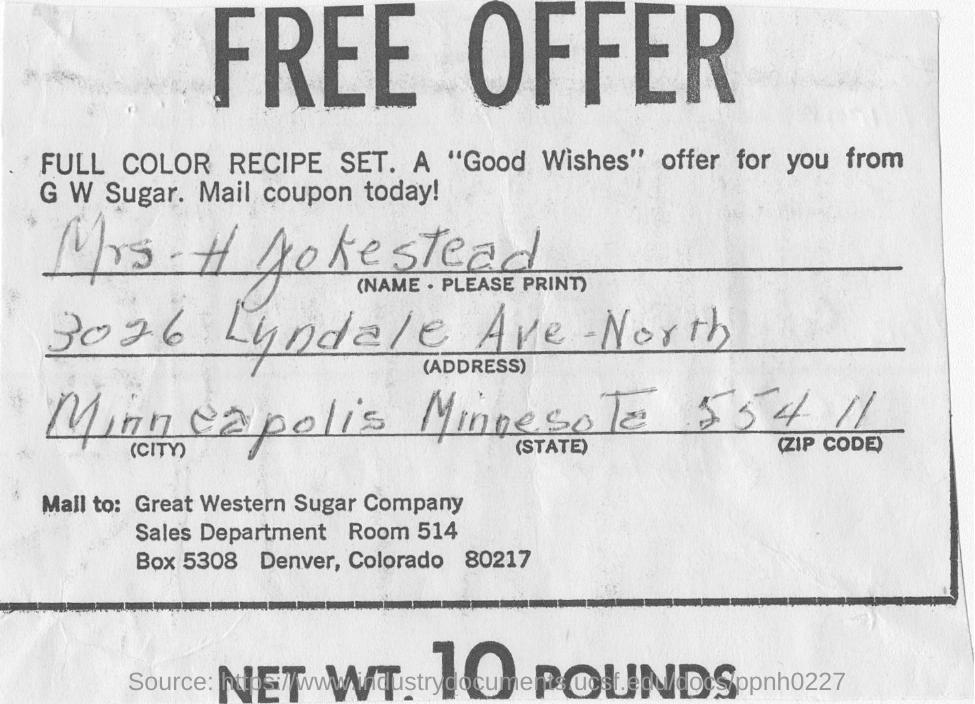 FREE OFFER
FULL COLOR RECIPE SET. A "Good Wishes" offer for you from
G W Sugar. Mail coupon today!
Mrs - H Jokestead
(NAME · PLEASE PRINT)
3026 Lyndale Ave - North
(ADDRESS)
Minneapolis Minnesota 55411
(CITY) (STATE) (ZIP CODE)
Mail to: Great Western Sugar Company
Sales Department Room 514
Box 5308 Denver, Colorado 80217
NET WT. 10 POUNDS
Source: https://www.industrydocuments.ucsf.edu/docs/ppnh0227